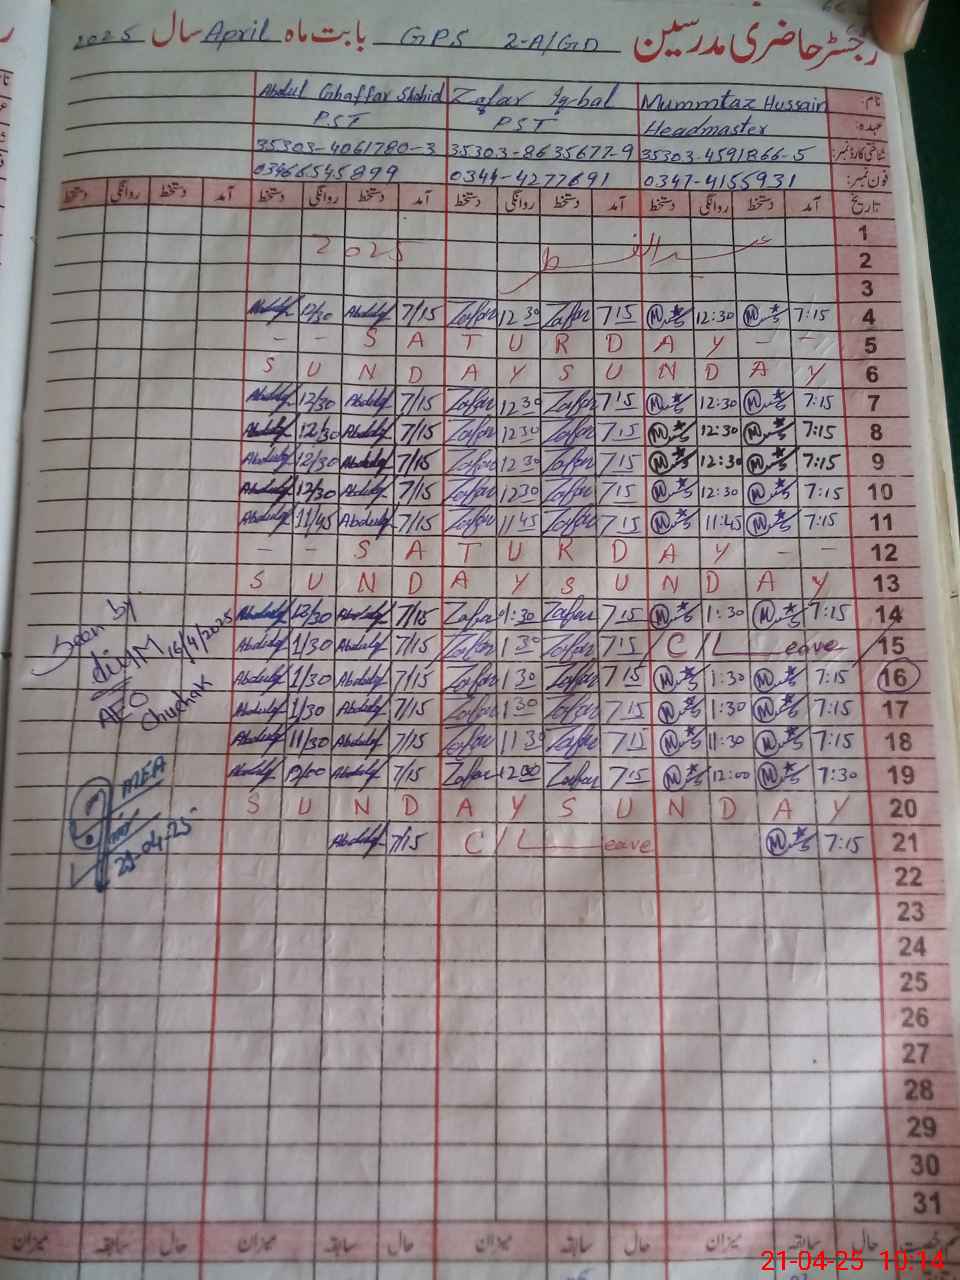 رجسٹر حاضری مدرسین GPS 2-A/GD بابت ماہ April سال 2025
نام: Mummtaz Hussain Zafar Iqbal Abdul Ghaffar Shahid
عہدہ: Headmaster PST PST
شناختی کارڈ نمبر: 35303-4591866-5 35303-8635677-9 35303-4061780-3
فون نمبر: 0347-4155931 0344-4277691 03466545899
تاریخ آمد دستخط روانگی دستخط آمد دستخط روانگی دستخط آمد دستخط روانگی دستخط آمد دستخط روانگی دستخط
1
2 عید الفطر 2025
3
4 7:15 12:30 7 15 Zafar 12 30 Zafar 7/15 12/30
5 - - S A T U R D A Y - -
6 S U N D A Y S U N D A Y
7 7:15 12:30 7 15 Zafar 12 30 Zafar 7/15 12/30
8 7:15 12:30 7 15 Zafar 12 30 Zafar 7/15 12/30
9 7:15 12:30 7 15 Zafar 12 30 Zafar 7/15 12/30
10 7:15 12:30 7 15 Zafar 12 30 Zafar 7/15 12/30
11 7:15 11:45 7 15 Zafar 11 45 Zafar 7/15 11/45
12 - - S A T U R D A Y - -
13 S U N D A Y S U N D A Y
14 7:15 1:30 7 15 Zafar 1:30 Zafar 7/15
15 C/Leave 7 15 Zafar 1 30 Zafar 7/15 1/30
16 7:15 1:30 7 15 Zafar 1 30 Zafar 7/15 1/30
17 7:15 1:30 7 15 Zafar 1 30 Zafar 7/15 1/30
18 7:15 11:30 7 15 Zafar 11 30 Zafar 7/15 11/30
19 7:30 12:00 7 15 Zafar 12 00 Zafar 7/15
20 S U N D A Y S U N D A Y
21 7:15 C/Leave 7/15
22
23
24
25
26
27
28
29
30
31
Seen by
16/4/2025
AEO
Chuchak
21-04-25
حال سابقہ میزان حال سابقہ میزان حال سابقہ میزان حال سابقہ میزان
21-04-25 10:14